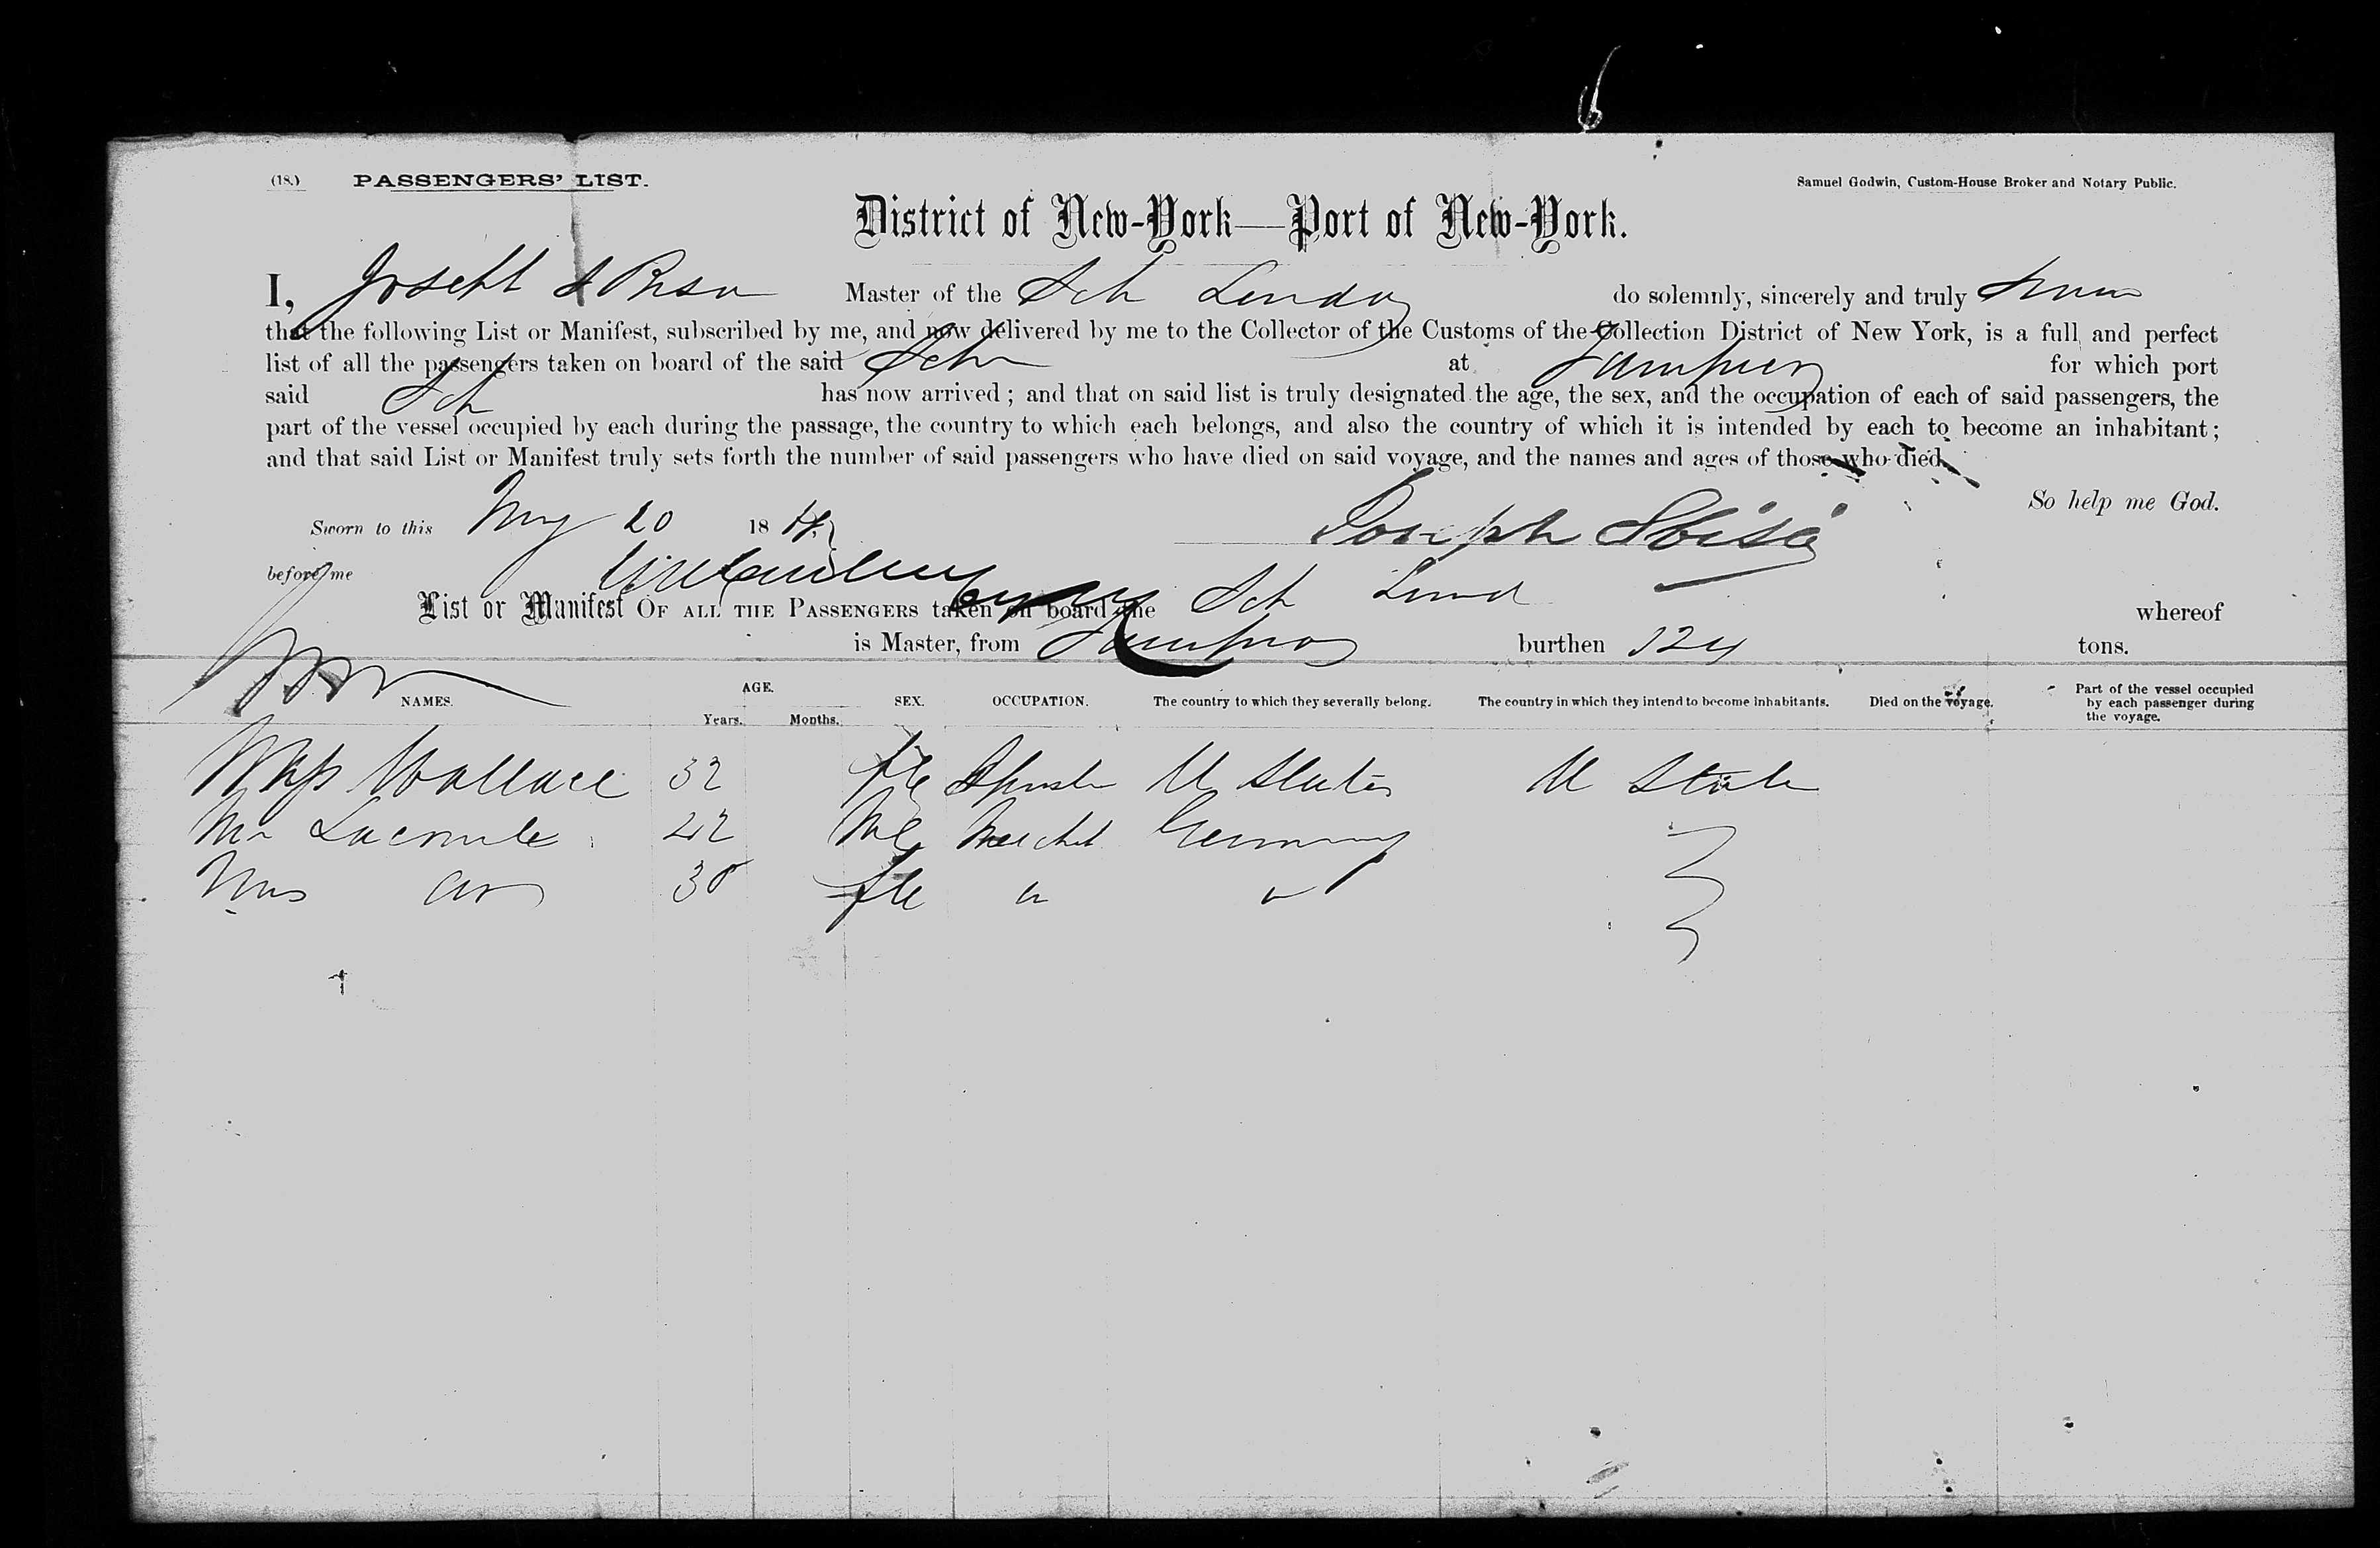 (18.) PASSENGERS' LIST. Samuel Godwin, Custom-House Broker and Notary Public.
District of New-York—Port of New-York.
I, Joseph Master of the Sch Linda do solemnly, sincerely and truly swear
that the following List or Manifest, subscribed by me, and now delivered by me to the Collector of the Customs of the Collection District of New York, is a full and perfect
list of all the passengers taken on board of the said Sch at Tampico for which port
said Sch has now arrived; and that on said list is truly designated the age, the sex, and the occupation of each of said passengers, the
part of the vessel occupied by each during the passage, the country to which each belongs, and also the country of which it is intended by each to become an inhabitant;
and that said List or Manifest truly sets forth the number of said passengers who have died on said voyage, and the names and ages of those who died.
So help me God.
Sworn to this May 20 18
Joseph Sbisa
before me
List or Manifest OF ALL THE PASSENGERS taken on board the Sch Linda whereof
is Master, from Tampico burthen 124 tons.
NAMES. AGE. Years. Months. SEX. OCCUPATION. The country to which they severally belong. The country in which they intend to become inhabitants. Died on the voyage. Part of the vessel occupied by each passenger during the voyage.
Miss Wallace 32 fle U States U State
Mr Lacomb 42 Me Germany
Mrs Do 30 fle " "